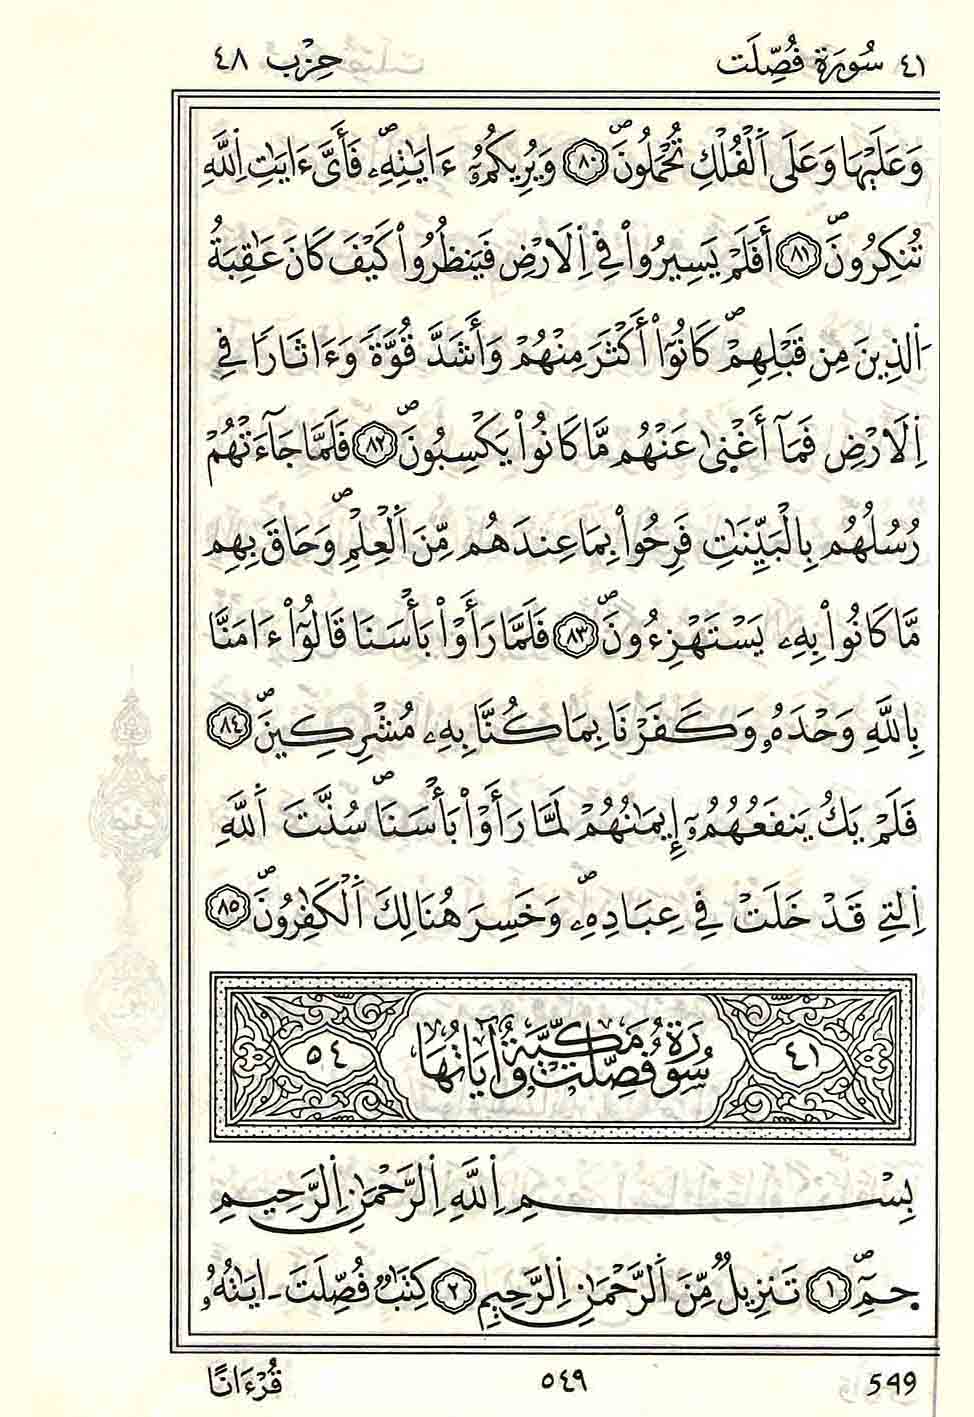 ٤١ سُورَةُ فُصِّلَت حِزْب ٤٨
وَعَلَيْهَا وَعَلَى اَ۬لْفُلْكِ تُحْمَلُونَۖ ٨٠ وَيُرِيكُمُۥٓ ءَايَٰتِهِۦۖ فَأَيَّ ءَايَٰتِ اِ۬للَّهِ
تُنكِرُونَۖ ٨١ أَفَلَمْ يَسِيرُواْ فِے اِ۬لَارْضِ فَيَنظُرُواْ كَيْفَ كَانَ عَٰقِبَةُ
اُ۬لذِينَ مِن قَبْلِهِمْۖ كَانُوٓاْ أَكْثَرَ مِنْهُمْ وَأَشَدَّ قُوَّةٗ وَءَاثَارٗا فِے
اِ۬لَارْضِ فَمَآ أَغْنٰي عَنْهُم مَّا كَانُواْ يَكْسِبُونَۖ ٨٢ فَلَمَّا جَآءَتْهُمْ
رُسُلُهُم بِالْبَيِّنَٰتِ فَرِحُواْ بِمَا عِندَهُم مِّنَ اَ۬لْعِلْمِۖ وَحَاقَ بِهِم
مَّا كَانُواْ بِهِۦ يَسْتَهْزِءُونَۖ ٨٣ فَلَمَّا رَأَوْاْ بَأْسَنَا قَالُوٓاْ ءَامَنَّا
بِاللَّهِ وَحْدَهُۥ وَكَفَرْنَا بِمَا كُنَّا بِهِۦ مُشْرِكِينَۖ ٨٤
فَلَمْ يَكُ يَنفَعُهُمُۥٓ إِيمَٰنُهُمْ لَمَّا رَأَوْاْ بَأْسَنَاۖ سُنَّتَ اَ۬للَّهِ
اِ۬لتِے قَدْ خَلَتْ فِے عِبَادِهِۦۖ وَخَسِرَ هُنَالِكَ اَ۬لْكَٰفِرُونَۖ ٨٥
٤١ سُورَةُ فُصِّلَتْ مَكِّيَّةٌ وَآيَاتُهَا ٥٤
بِسْمِ اِ۬للَّهِ اِ۬لرَّحْمَٰنِ اِ۬لرَّحِيمِ
حمٓۖ ١ تَنزِيلٞ مِّنَ اَ۬لرَّحْمَٰنِ اِ۬لرَّحِيمِ ٢ كِتَٰبٞ فُصِّلَتَ ـ ايَٰتُهُۥ
قُرْءَاناً ٥٤٩ 549